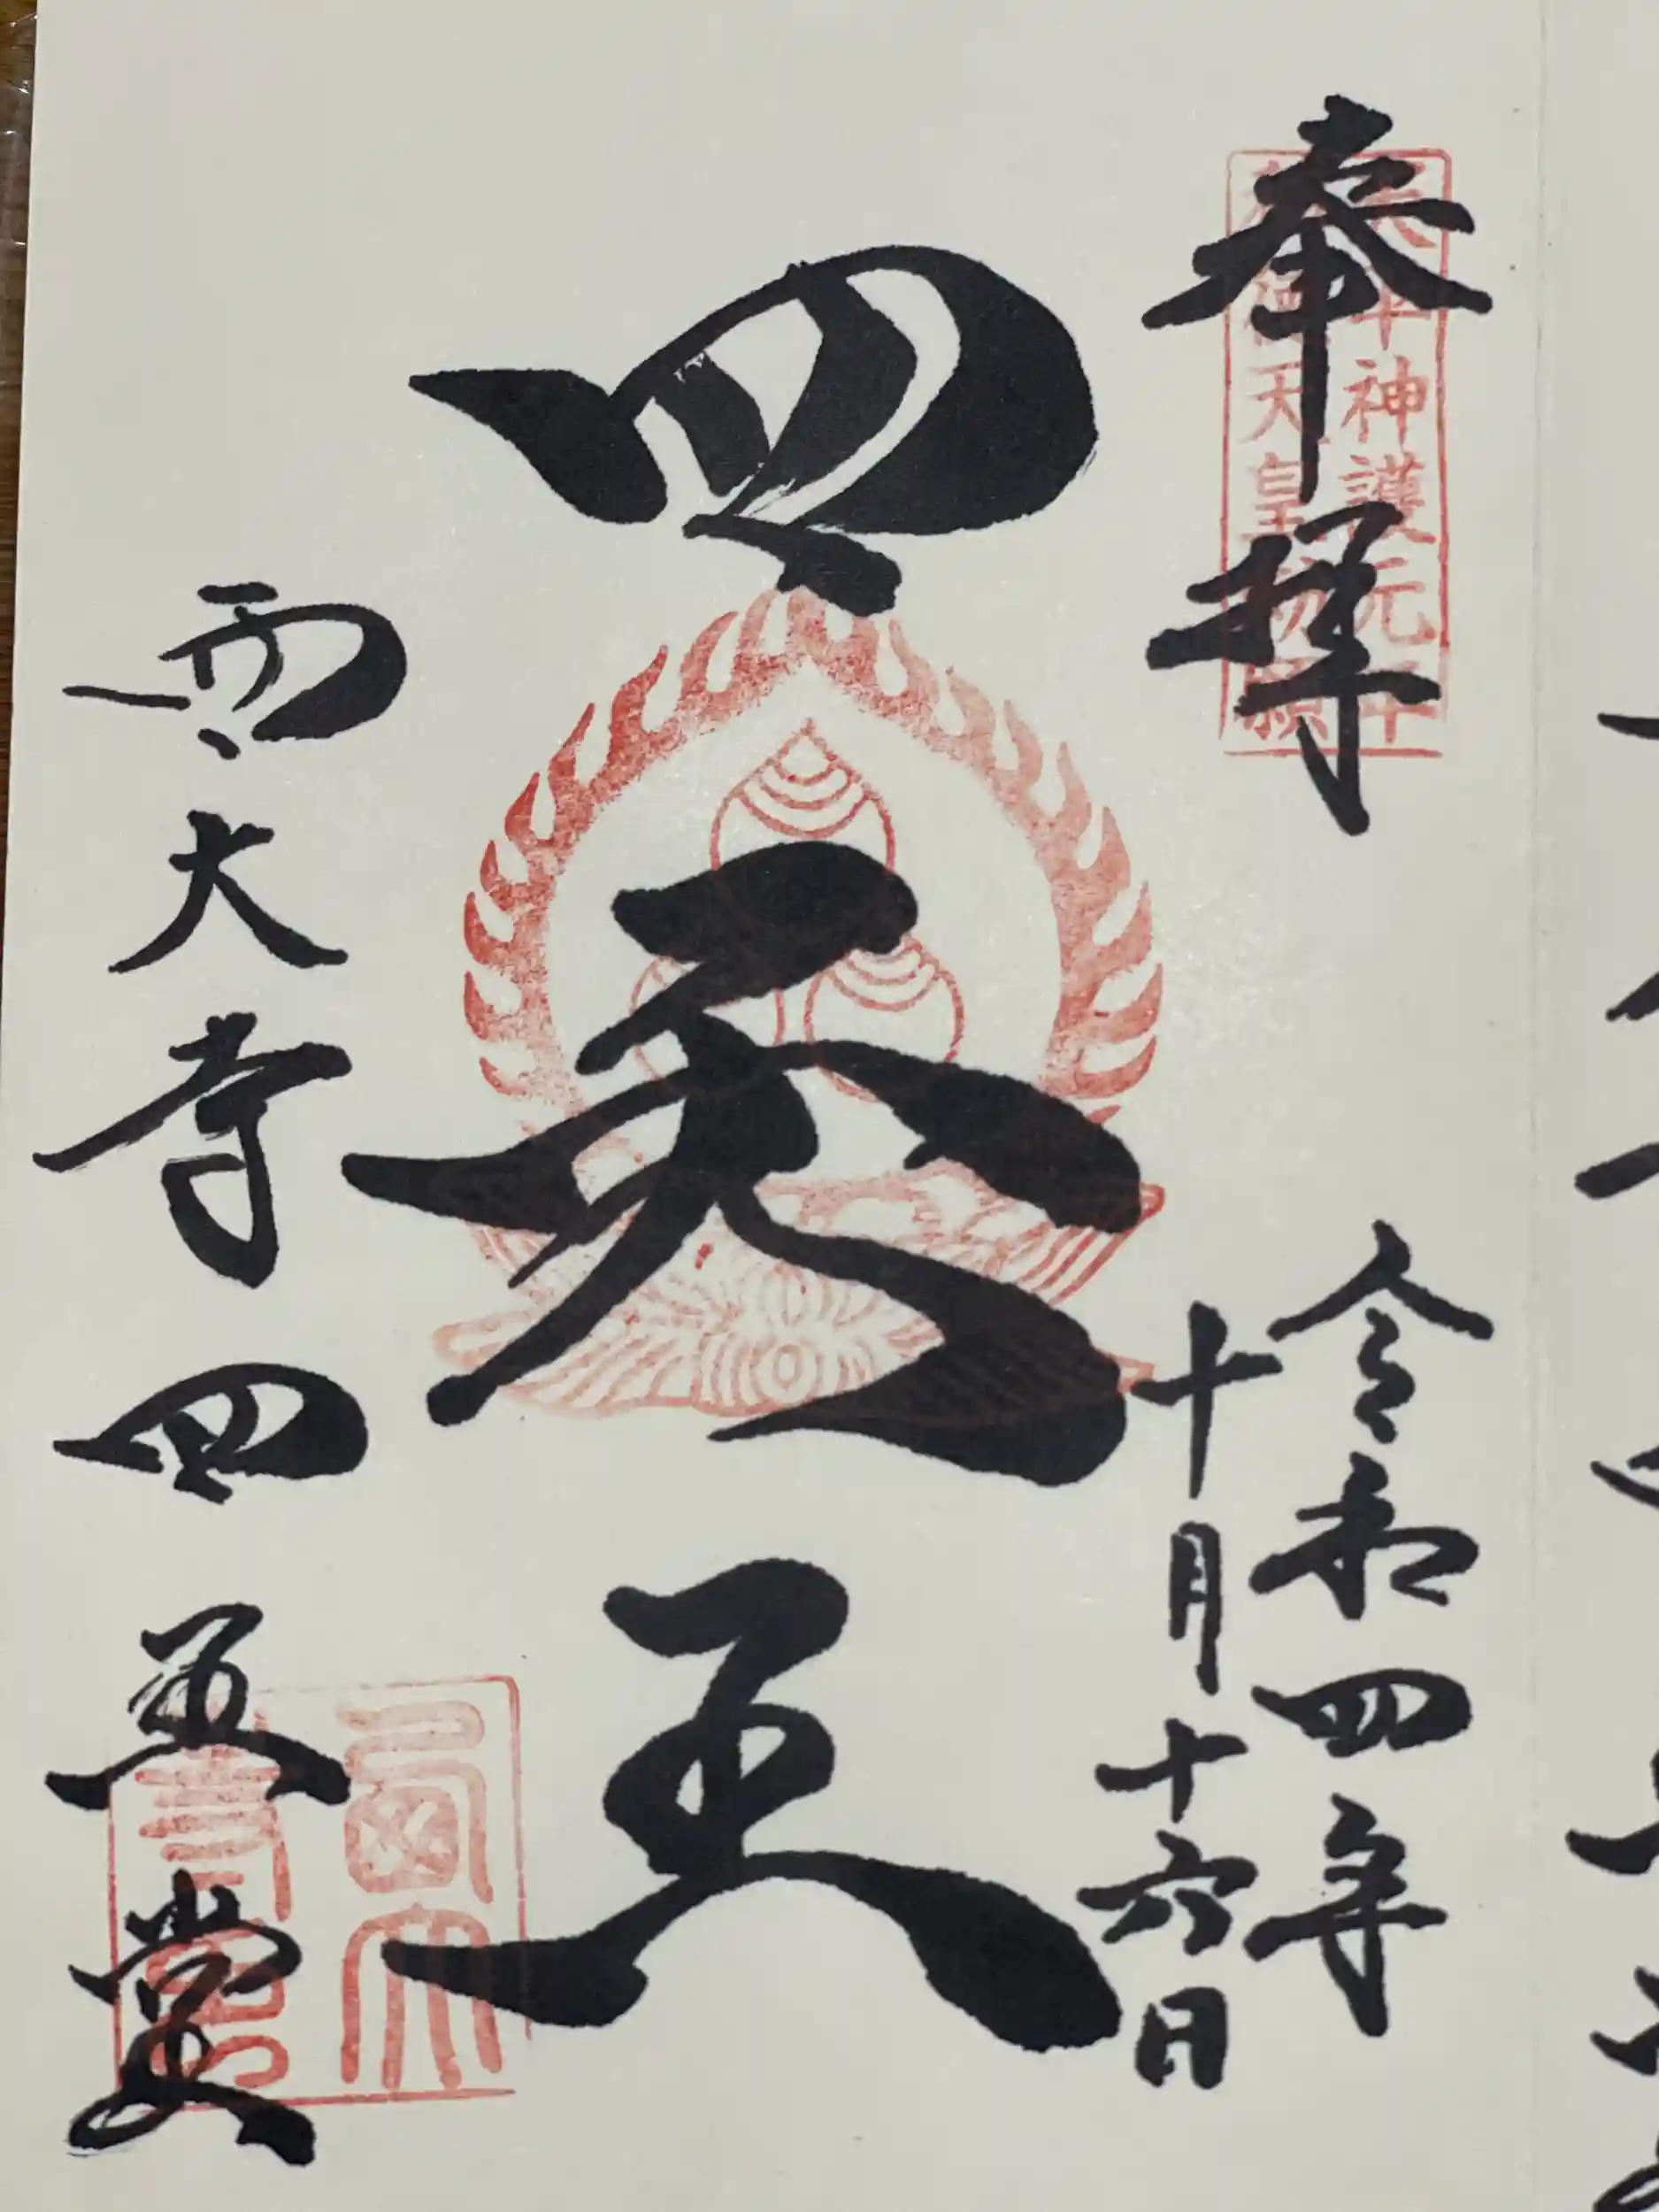 奉拝
天平神護元年
称徳天皇勅願
令和四年
十月十六日
四天王
西大寺四王堂
西大
寺印